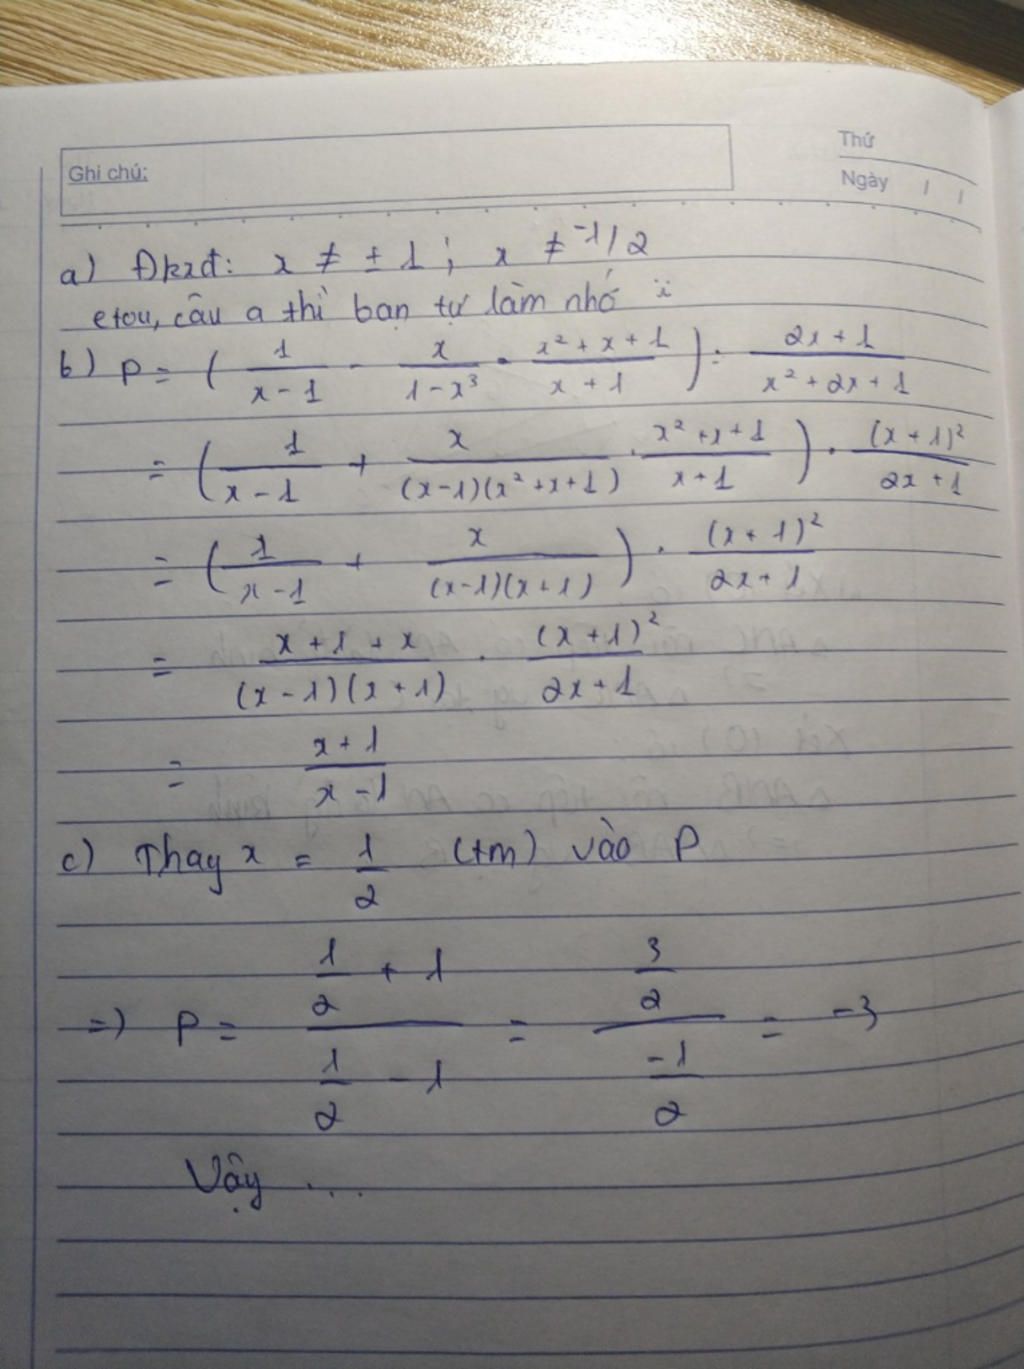 Thứ
Ghi chú:
Ngày / /
a) Đkxđ: x ≠ ± 1 ; x ≠ -1/2
etou, câu a thì bạn tự làm nhó ï
b) P = ( 1/(x - 1) - x/(1 - x³) · (x² + x + 1)/(x + 1) ) : (2x + 1)/(x² + 2x + 1)
= ( 1/(x - 1) + x/((x-1)(x² + x + 1)) · (x² + x + 1)/(x + 1) ) · (x + 1)²/(2x + 1)
= ( 1/(x - 1) + x/((x-1)(x + 1)) ) · (x + 1)²/(2x + 1)
= (x + 1 + x)/((x - 1)(x + 1)) · (x + 1)²/(2x + 1)
= (x + 1)/(x - 1)
c) Thay x = 1/2 (tm) vào P
=) P = (1/2 + 1)/(1/2 - 1) = (3/2)/(-1/2) = -3
Vậy ...